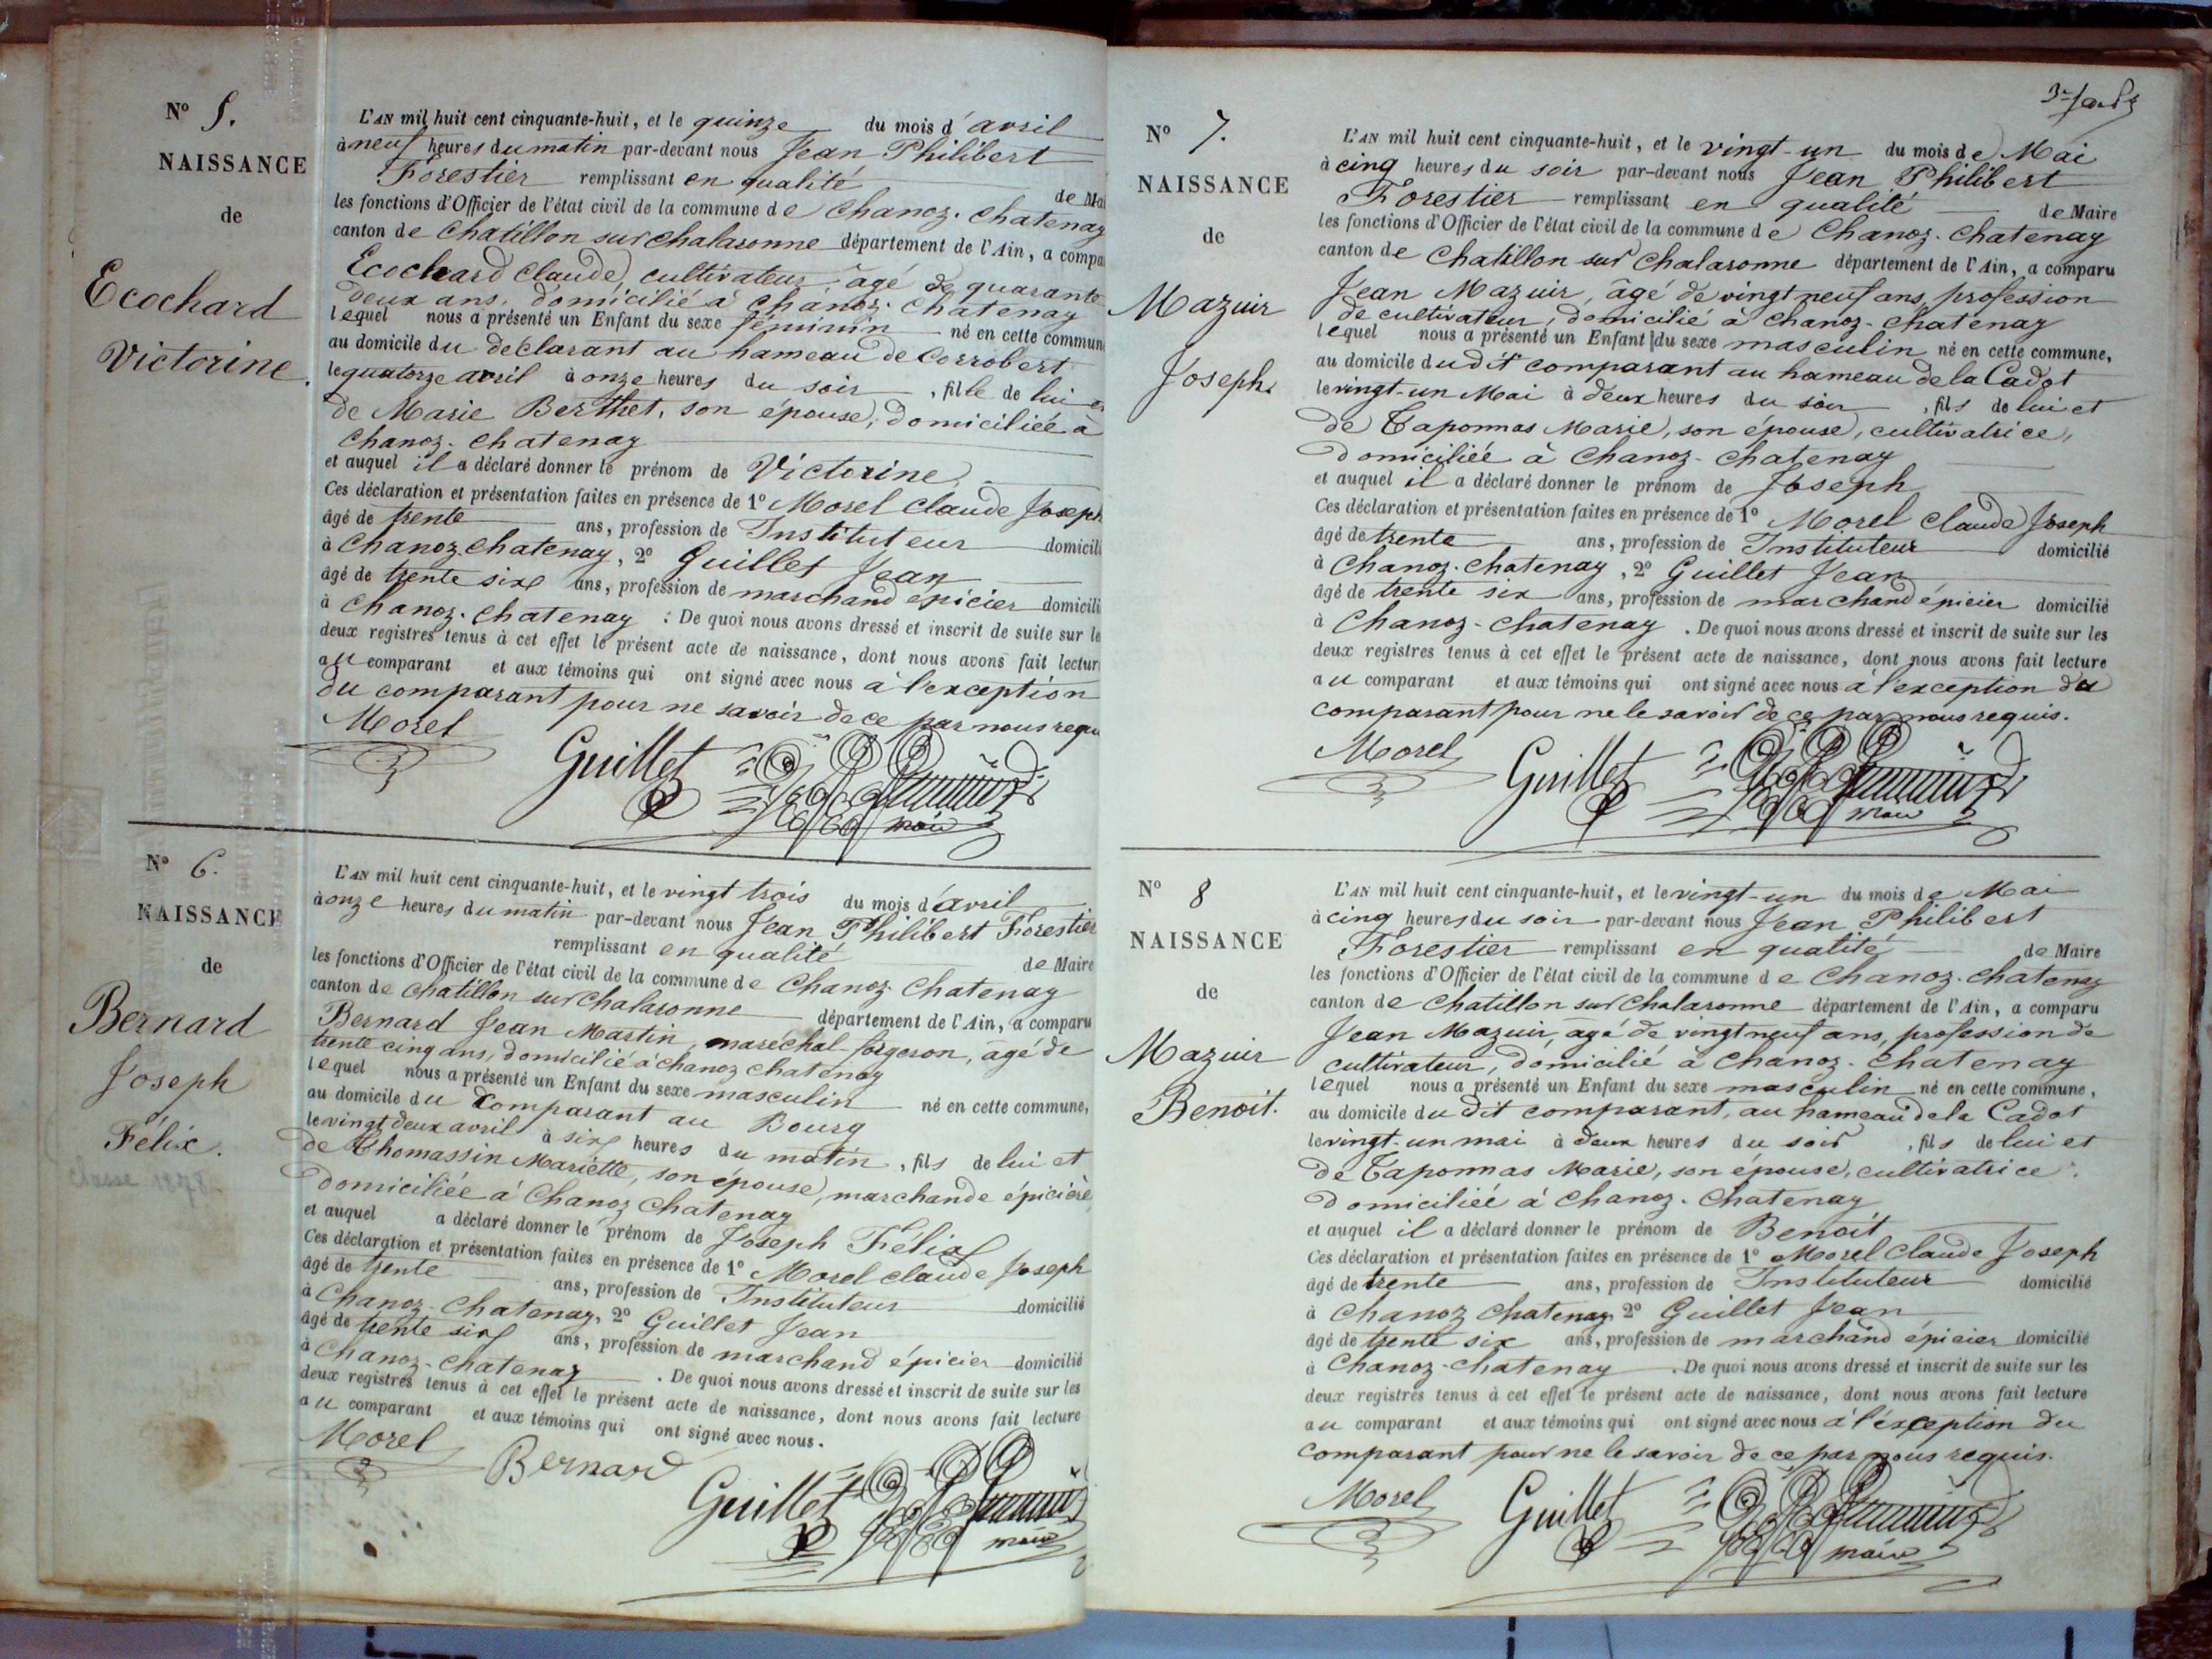 N° 5.
NAISSANCE
de
Ecochard
Victorine.
L'AN mil huit cent cinquante-huit, et le quinze du mois d'avril
à neuf heures du matin par-devant nous Jean Philibert
Forestier remplissant en qualité de Mai
les fonctions d'Officier de l'état civil de la commune de Chanoz-Chatenay
canton de Chatillon sur Chalaronne département de l'Ain, a compa
Ecochard Claude, cultivateur, âgé de quarante
deux ans, domicilié à Chanoz-Chatenay
lequel nous a présenté un Enfant du sexe féminin né en cette commun
au domicile du declarant au hameau de Corrobert
le quatorze avril à onze heures du soir, fille de lui et
de Marie Berthet, son épouse, domiciliée à
Chanoz-Chatenay
et auquel il a déclaré donner le prénom de Victorine
Ces déclaration et présentation faites en présence de 1° Morel Claude Joseph
âgé de trente ans, profession de Instituteur domicili
à Chanoz-Chatenay, 2° Guillet Jean
âgé de trente six ans, profession de marchand épicier domicili
à Chanoz-Chatenay : De quoi nous avons dressé et inscrit de suite sur le
deux registres tenus à cet effet le présent acte de naissance, dont nous avons fait lectur
au comparant et aux témoins qui ont signé avec nous à l'exception
du comparant pour ne savoir de ce par nous requ
Morel Guillet
maire
N° 6.
NAISSANCE
de
Bernard
Joseph
Félix.
Classe 1878.
L'AN mil huit cent cinquante-huit, et le vingt trois du mois d'avril
à onze heures du matin par-devant nous Jean Philibert Forestier
remplissant en qualité de Maire
les fonctions d'Officier de l'état civil de la commune de Chanoz-Chatenay
canton de Chatillon sur Chalaronne département de l'Ain, a comparu
Bernard Jean Martin, maréchal-forgeron, âgé de
trente cinq ans, domicilié à Chanoz Chatenay
lequel nous a présenté un Enfant du sexe masculin né en cette commune,
au domicile du comparant au Bourg
le vingt deux avril à six heures du matin, fils de lui et
de Thomassin Mariette, son épouse, marchande épicière
domiciliée à Chanoz Chatenay
et auquel a déclaré donner le prénom de Joseph Félix
Ces déclaration et présentation faites en présence de 1° Morel Claude Joseph
âgé de trente ans, profession de Instituteur domicilié
à Chanoz-Chatenay, 2° Guillet Jean
âgé de trente six ans, profession de marchand épicier domicilié
à Chanoz-Chatenay . De quoi nous avons dressé et inscrit de suite sur les
deux registres tenus à cet effet le présent acte de naissance, dont nous avons fait lecture
au comparant et aux témoins qui ont signé avec nous.
Morel Bernard Guillet
maire
N° 7.
NAISSANCE
de
Mazuir
Joseph.
L'AN mil huit cent cinquante-huit, et le vingt-un du mois de Mai
à cinq heures du soir par-devant nous Jean Philibert
Forestier remplissant en qualité de Maire
les fonctions d'Officier de l'état civil de la commune de Chanoz-Chatenay
canton de Chatillon sur Chalaronne département de l'Ain, a comparu
Jean Mazuir, âgé de vingt neuf ans, profession
de cultivateur, domicilié à Chanoz-Chatenay
lequel nous a présenté un Enfant du sexe masculin né en cette commune,
au domicile dudit comparant au hameau de la Cadot
le vingt-un Mai à deux heures du soir, fils de lui et
de Taponnas Marie, son épouse, cultivatrice,
domiciliée à Chanoz-Chatenay
et auquel il a déclaré donner le prénom de Joseph
Ces déclaration et présentation faites en présence de 1° Morel Claude Joseph
âgé de trente ans, profession de Instituteur domicilié
à Chanoz-Chatenay, 2° Guillet Jean
âgé de trente six ans, profession de marchand épicier domicilié
à Chanoz-Chatenay . De quoi nous avons dressé et inscrit de suite sur les
deux registres tenus à cet effet le présent acte de naissance, dont nous avons fait lecture
au comparant et aux témoins qui ont signé avec nous à l'exception du
comparant pour ne le savoir de ce par nous requis.
Morel Guillet
maire
N° 8
NAISSANCE
de
Mazuir
Benoit.
L'AN mil huit cent cinquante-huit, et le vingt-un du mois de Mai
à cinq heures du soir par-devant nous Jean Philibert
Forestier remplissant en qualité de Maire
les fonctions d'Officier de l'état civil de la commune de Chanoz-Chatenay
canton de Chatillon sur Chalaronne département de l'Ain, a comparu
Jean Mazuir, agé de vingt neuf ans, profession de
cultivateur, domicilié à Chanoz-Chatenay
lequel nous a présenté un Enfant du sexe masculin né en cette commune,
au domicile du dit comparant, au hameau de la Cadot
le vingt-un mai à deux heures du soir, fils de lui et
de Taponnas Marie, son épouse, cultivatrice
domiciliée à Chanoz-Chatenay
et auquel il a déclaré donner le prénom de Benoit
Ces déclaration et présentation faites en présence de 1° Morel Claude Joseph
âgé de trente ans, profession de Instituteur domicilié
à Chanoz Chatenay 2° Guillet Jean
âgé de trente six ans, profession de marchand épicier domicilié
à Chanoz-Chatenay . De quoi nous avons dressé et inscrit de suite sur les
deux registres tenus à cet effet le présent acte de naissance, dont nous avons fait lecture
au comparant et aux témoins qui ont signé avec nous à l'éxception du
comparant pour ne le savoir de ce par nous requis.
Morel Guillet
maire